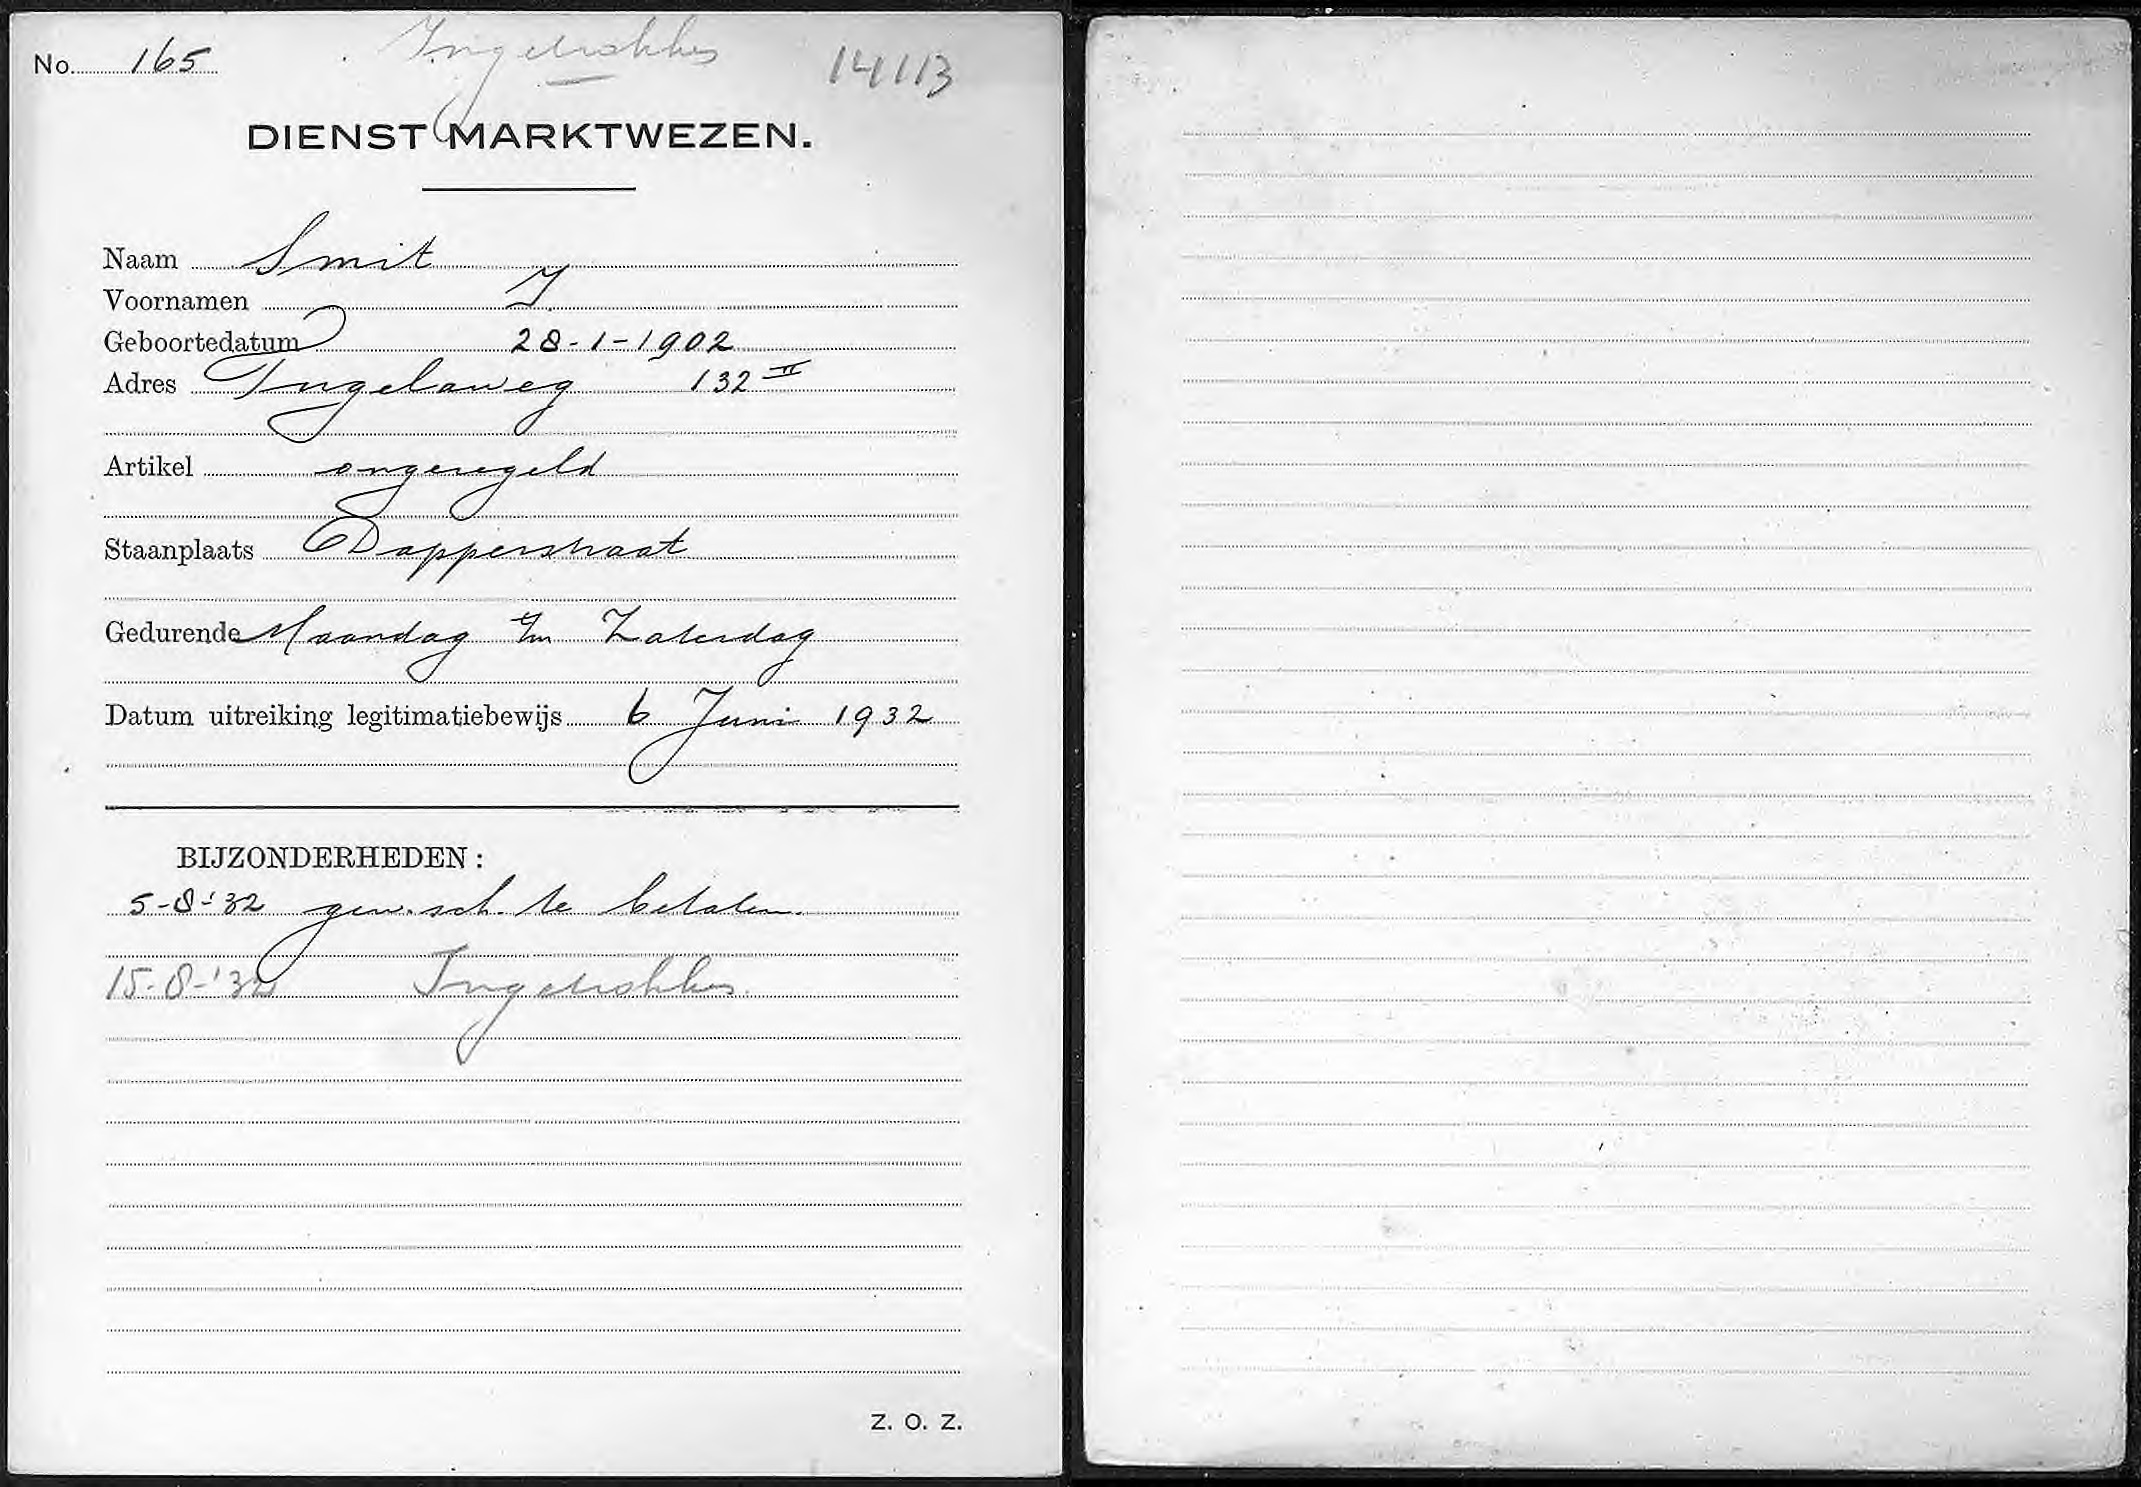 No. 165 Ingetrokken 14113
DIENST MARKTWEZEN.
Naam Smit
Voornamen J
Geboortedatum 28-1-1902
Adres Ingelaweg 132 II
Artikel ongeregeld
Staanplaats Dapperstraat
Gedurende Maandag t/m Zaterdag
Datum uitreiking legitimatiebewijs 6 Juni 1932
BIJZONDERHEDEN:
5-8-'32 gew. sch. te betalen.
15-8-'32 Ingetrokken.
Z. O. Z.